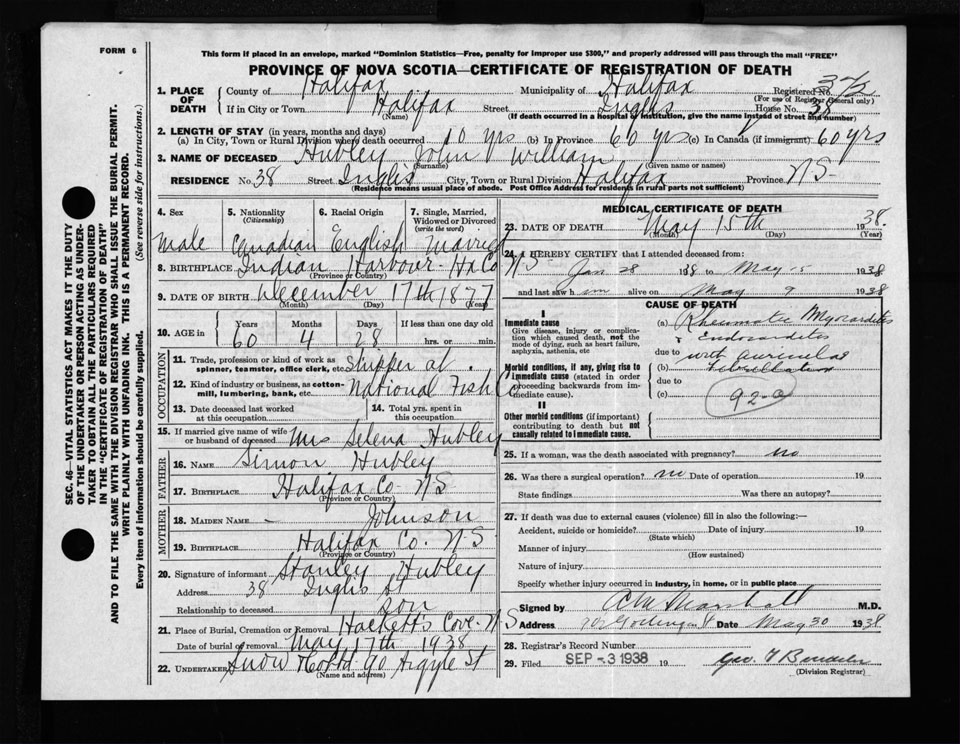 FORM 6
This form if placed in an envelope, marked "Dominion Statistics—Free, penalty for improper use $300," and properly addressed will pass through the mail "FREE"
PROVINCE OF NOVA SCOTIA—CERTIFICATE OF REGISTRATION OF DEATH
1. PLACE OF DEATH
County of Halifax Municipality of Halifax Registered No.
(For use of Registrar General only)
If in City or Town Halifax Street Inglis House No. 38
(Name) (If death occurred in a hospital or institution, give the name instead of street and number)
2. LENGTH OF STAY (in years, months and days)
(a) In City, Town or Rural Division where death occurred 10 yrs (b) In Province 60 yrs (c) In Canada (if immigrant) 60 yrs
3. NAME OF DECEASED Hubley John William
(Surname) (Given name or names)
RESIDENCE No. 38 Street Inglis City, Town or Rural Division Halifax Province N S
(Residence means usual place of abode. Post Office Address for residents in rural parts not sufficient)
4. Sex 5. Nationality (Citizenship) 6. Racial Origin 7. Single, Married, Widowed or Divorced (write the word)
Male Canadian English Married
8. BIRTHPLACE Indian Harbour Hx Co N S
(Province or Country)
9. DATE OF BIRTH December 17th 1877
(Month) (Day) (Year)
10. AGE in Years Months Days If less than one day old
60 4 28 hrs. or min.
OCCUPATION
11. Trade, profession or kind of work as spinner, teamster, office clerk, etc. Skipper at
12. Kind of industry or business, as cotton-mill, lumbering, bank, etc. National Fish Co
13. Date deceased last worked at this occupation 14. Total yrs. spent in this occupation
15. If married give name of wife or husband of deceased Mrs Selena Hubley
FATHER
16. NAME Simon Hubley
17. BIRTHPLACE Halifax Co N S
(Province or Country)
MOTHER
18. MAIDEN NAME — Johnson
19. BIRTHPLACE Halifax Co. N S
(Province or Country)
20. Signature of informant Stanley Hubley
Address 38 Inglis St
Relationship to deceased son
21. Place of Burial, Cremation or Removal Hacketts Cove N S
Date of burial or removal May 17th 1938
22. UNDERTAKER Snow & Co Ltd 90 Argyle St
(Name and address)
MEDICAL CERTIFICATE OF DEATH
23. DATE OF DEATH May 15th 1938
(Month) (Day) (Year)
24. I HEREBY CERTIFY that I attended deceased from:
Jan 28 1938 to May 15 1938
and last saw him alive on May 9 1938
CAUSE OF DEATH
I
Immediate cause
Give disease, injury or complication which caused death, not the mode of dying, such as heart failure, asphyxia, asthenia, etc
(a) Rheumatic Myocarditis
& Endocarditis
due to with auricular
Morbid conditions, if any, giving rise to immediate cause (stated in order proceeding backwards from immediate cause).
(b) Fibrillation
due to
(c) 92-c
II
Other morbid conditions (if important) contributing to death but not causally related to immediate cause.
25. If a woman, was the death associated with pregnancy? no
26. Was there a surgical operation? no Date of operation 19
State findings Was there an autopsy?
27. If death was due to external causes (violence) fill in also the following:—
Accident, suicide or homicide? Date of injury 19
(State which)
Manner of injury
(How sustained)
Nature of injury
Specify whether injury occurred in industry, in home, or in public place
Signed by Marshall M.D.
Address Date May 30 1938
28. Registrar's Record Number
29. Filed SEP -3 1938 19 Geo.
(Division Registrar)
SEC. 46—VITAL STATISTICS ACT MAKES IT THE DUTY
OF THE UNDERTAKER OR PERSON ACTING AS UNDERTAKER TO OBTAIN ALL THE PARTICULARS REQUIRED
IN THE "CERTIFICATE OF REGISTRATION OF DEATH"
AND TO FILE THE SAME WITH THE DIVISION REGISTRAR WHO SHALL ISSUE THE BURIAL PERMIT.
WRITE PLAINLY WITH UNFADING INK. THIS IS A PERMANENT RECORD.
Every item of information should be carefully supplied. (See reverse side for instructions.)